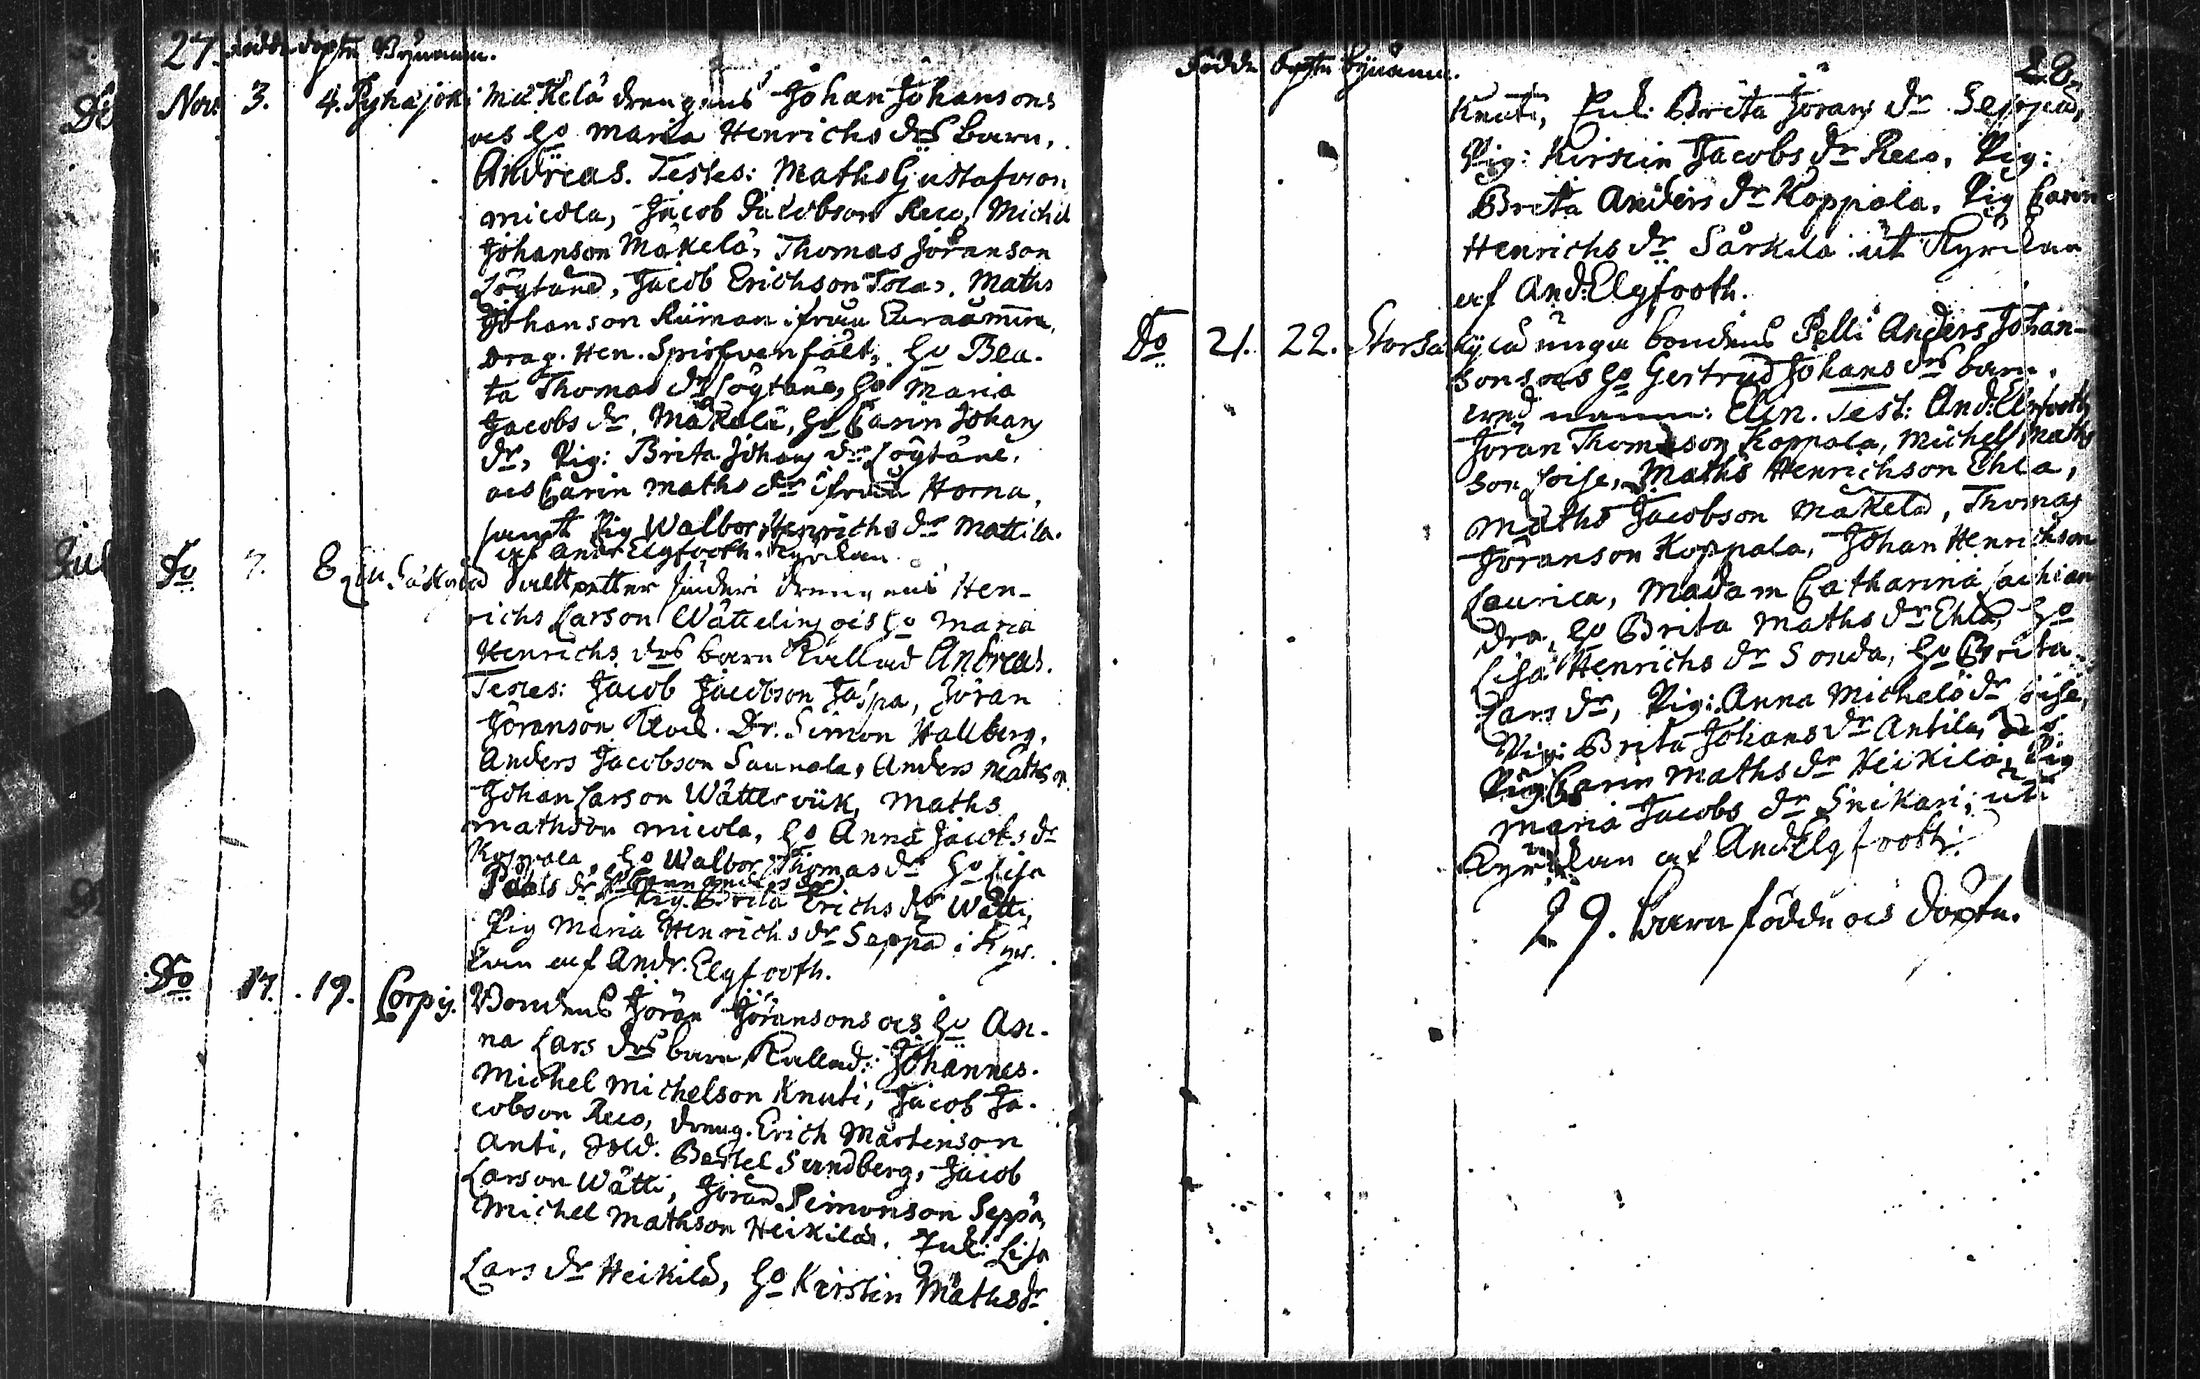 27. födde döpte Bynamn.
Nov. 3. 4. Pyhäjoki Mäkelä drengens Johan Johansons
ocs ho Maria Henrichs drs barn,
Andreas. Testes: Maths Gustafsson
Micola, Jacob Jacobson Reco, Michel
Johanson Mäkelä, Thomas Jöranson
Löytäne, Jacob Erichson Tocas, Maths
Johanson ifrån
Drag. Hen. ho Bea-
ta Thomas dr Löytäne, ho Maria
Jacobs dr, Mäkelä, ho Carin Johans
dr, Pig: Brita Johans dr Löytäne,
ocs Carin Maths dr ifrån Horna,
samt Pig Walbor Henrichs dr Mattila.
af Andr Elgfooth. Kyrckan
Do 7. 8 drengens Hen-
richs Larson ocs ho Maria
Henrichs drs barn Kallad Andreas.
Testes: Jacob Jacobson Jaspa, Jöran
Jöranson Dr. Simon Hallberg,
Anders Jacobson Saunala, Anders Mathson
Johan Larson Maths
Mathson Micola, ho Anna Jacobs dr
Koppala, ho Walbor Thomas dr ho Lisa
Påhls dr Pig. Brita Erichs dr Wätti,
Pig Maria Henrichs dr Seppä i Kyr-
kan af Andr. Elgfooth.
Do 17. 19. Corpij. Bondens Jöran Jöransons ocs ho An-
na Lars drs barn, Kallad: Johannes.
Michel Michelson Knuti, Jacob Ja-
cobson Reco, dreng. Erich Mårtenson
Anti, Sold. Bertel Sundberg, Jacob
Larson Wätti, Jöran Simonson Seppä,
Michel Mathson Heikilä. Lisa
Lars dr Heikilä, ho Kirstin Maths dr
födde döpte bynamn. 28.
Knuti, Brita Jörans dr Seppä,
Pig: Kirstin Jacobs dr Reco, Pig:
Brita Anders dr Koppala, Pig Carin
Henrichs dr Särkilä ut Kyrckan
af And: Elgfooth.
Do 21. 22. Storsäkylä unga bondens Pelli Anders Johan-
sons ocs ho Gertrud Johans drs barn.
namn: Elin. Test: And: Elgfooth
Jöran Thomason Koppala, Michel Maths
son Maths Henrichson Ehla,
Maths Jacobson Mäkelä, Thomas
Jöranson Koppala, Johan Henrichson
Laurica, Madam Catharina
ho Brita Maths dr Ehla, ho
Lisa Henrichs dr Sonda, ho Brita
Lars dr, Pig: Anna Michels dr
Pig: Brita Johans dr Antila,
Pig: Carin Maths dr Heikilä, Pig
Maria Jacobs dr Snikari; uti
Kyrckan af And: Elgfooth.
29. barn födde ocs döpte.